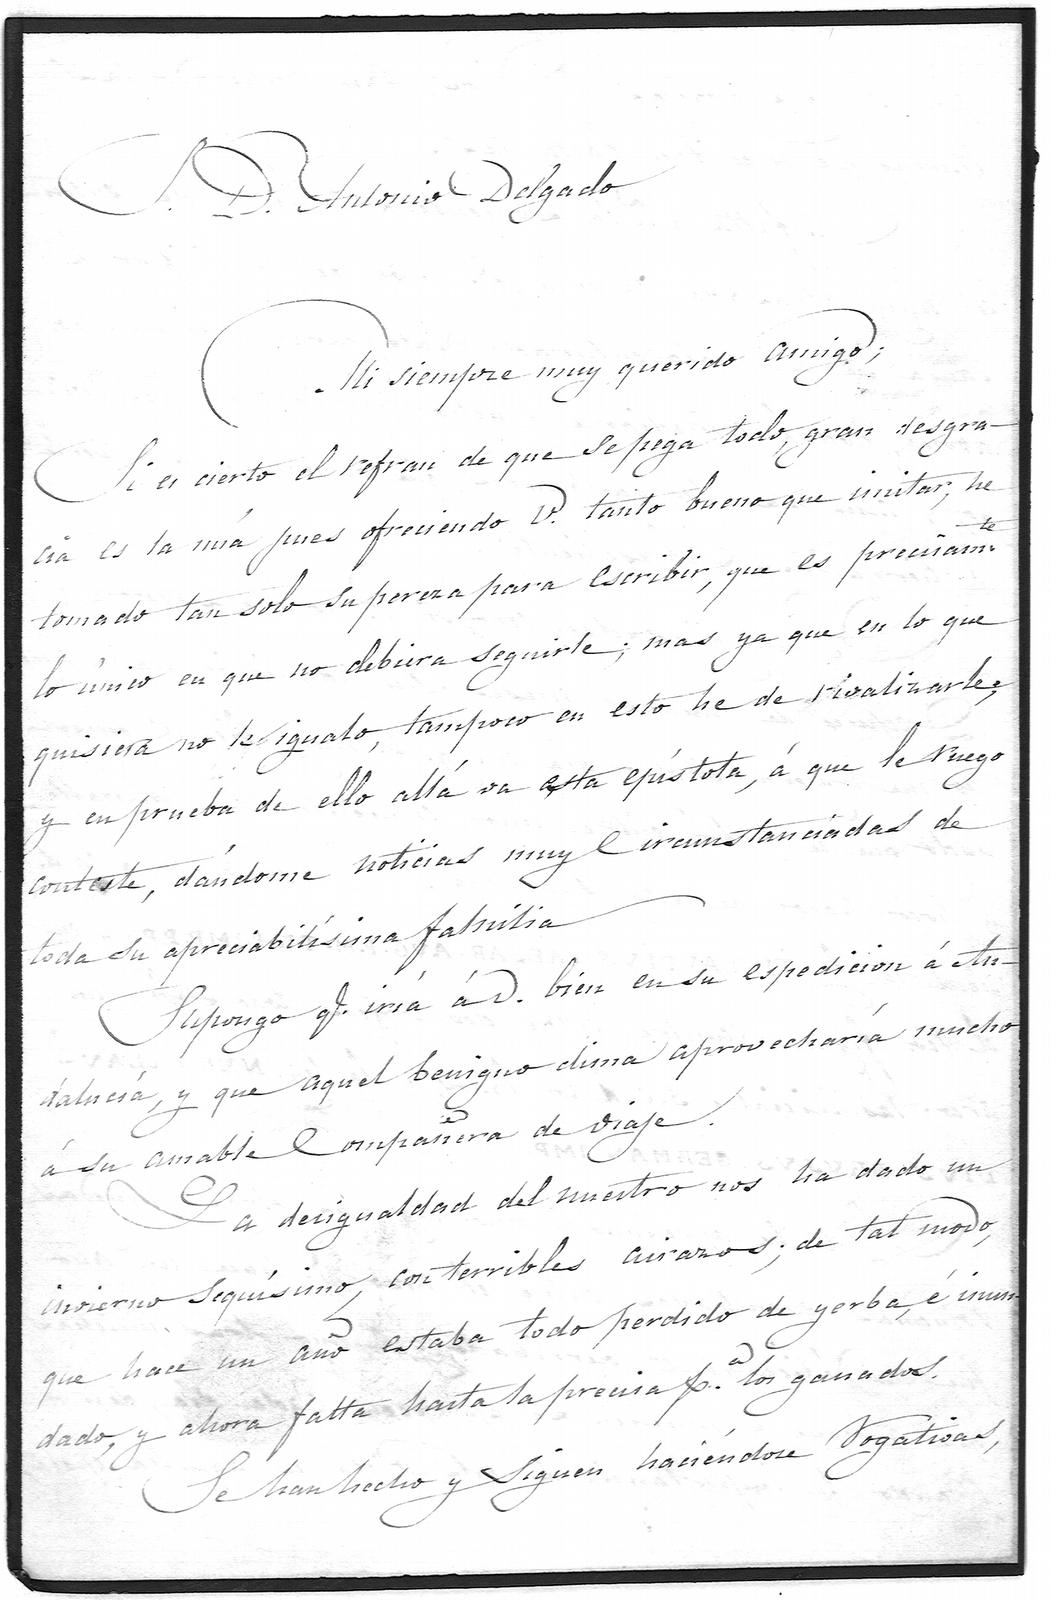 S. D. Antonio Delgado
Mi siempre muy querido amigo;
Si es cierto el refran de que se pega todo, gran desgra-
cia es la mia pues ofreciendo V. tanto bueno que imitar, he
tomado tan solo su pereza para escribir, que es precisam.te
lo único en que no debiera seguirle; mas ya que en lo que
quisiera no le igualo, tampoco en esto he de rivalizarle;
y en prueba de ello allá va esta epístola, á que le ruego
conteste, dándome noticias muy circunstanciadas de
toda su apreciabilísima familia
Supongo q. iría á V. bien en su espedicion á An-
dalucía, y que aquel benigno clima aprovecharía mucho
á su amable Compañera de viaje.
La desigualdad del nuestro nos ha dado un
invierno sequísimo, con terribles airazos; de tal modo,
que hace un año estaba todo perdido de yerba, é inun-
dado, y ahora falta hasta la precisa p.a los ganados.
Se han hecho y siguen haciéndose Rogativas,